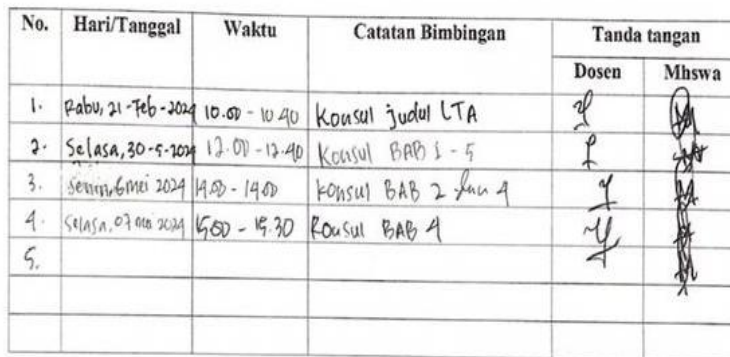 No. Hari/Tanggal Waktu Catatan Bimbingan Tanda tangan
Dosen Mhswa
1. Rabu, 21-Feb-2024 10.00 - 10.40 Konsul judul LTA
2. Selasa, 30-5-2024 12.00 - 12.40 Konsul BAB 1 - 5
3. Senin, 6 mei 2024 14.00 - 14.00 Konsul BAB 2 dan 4
4. Selasa, 07 mei 2024 15.00 - 15.30 Konsul BAB 4
5.